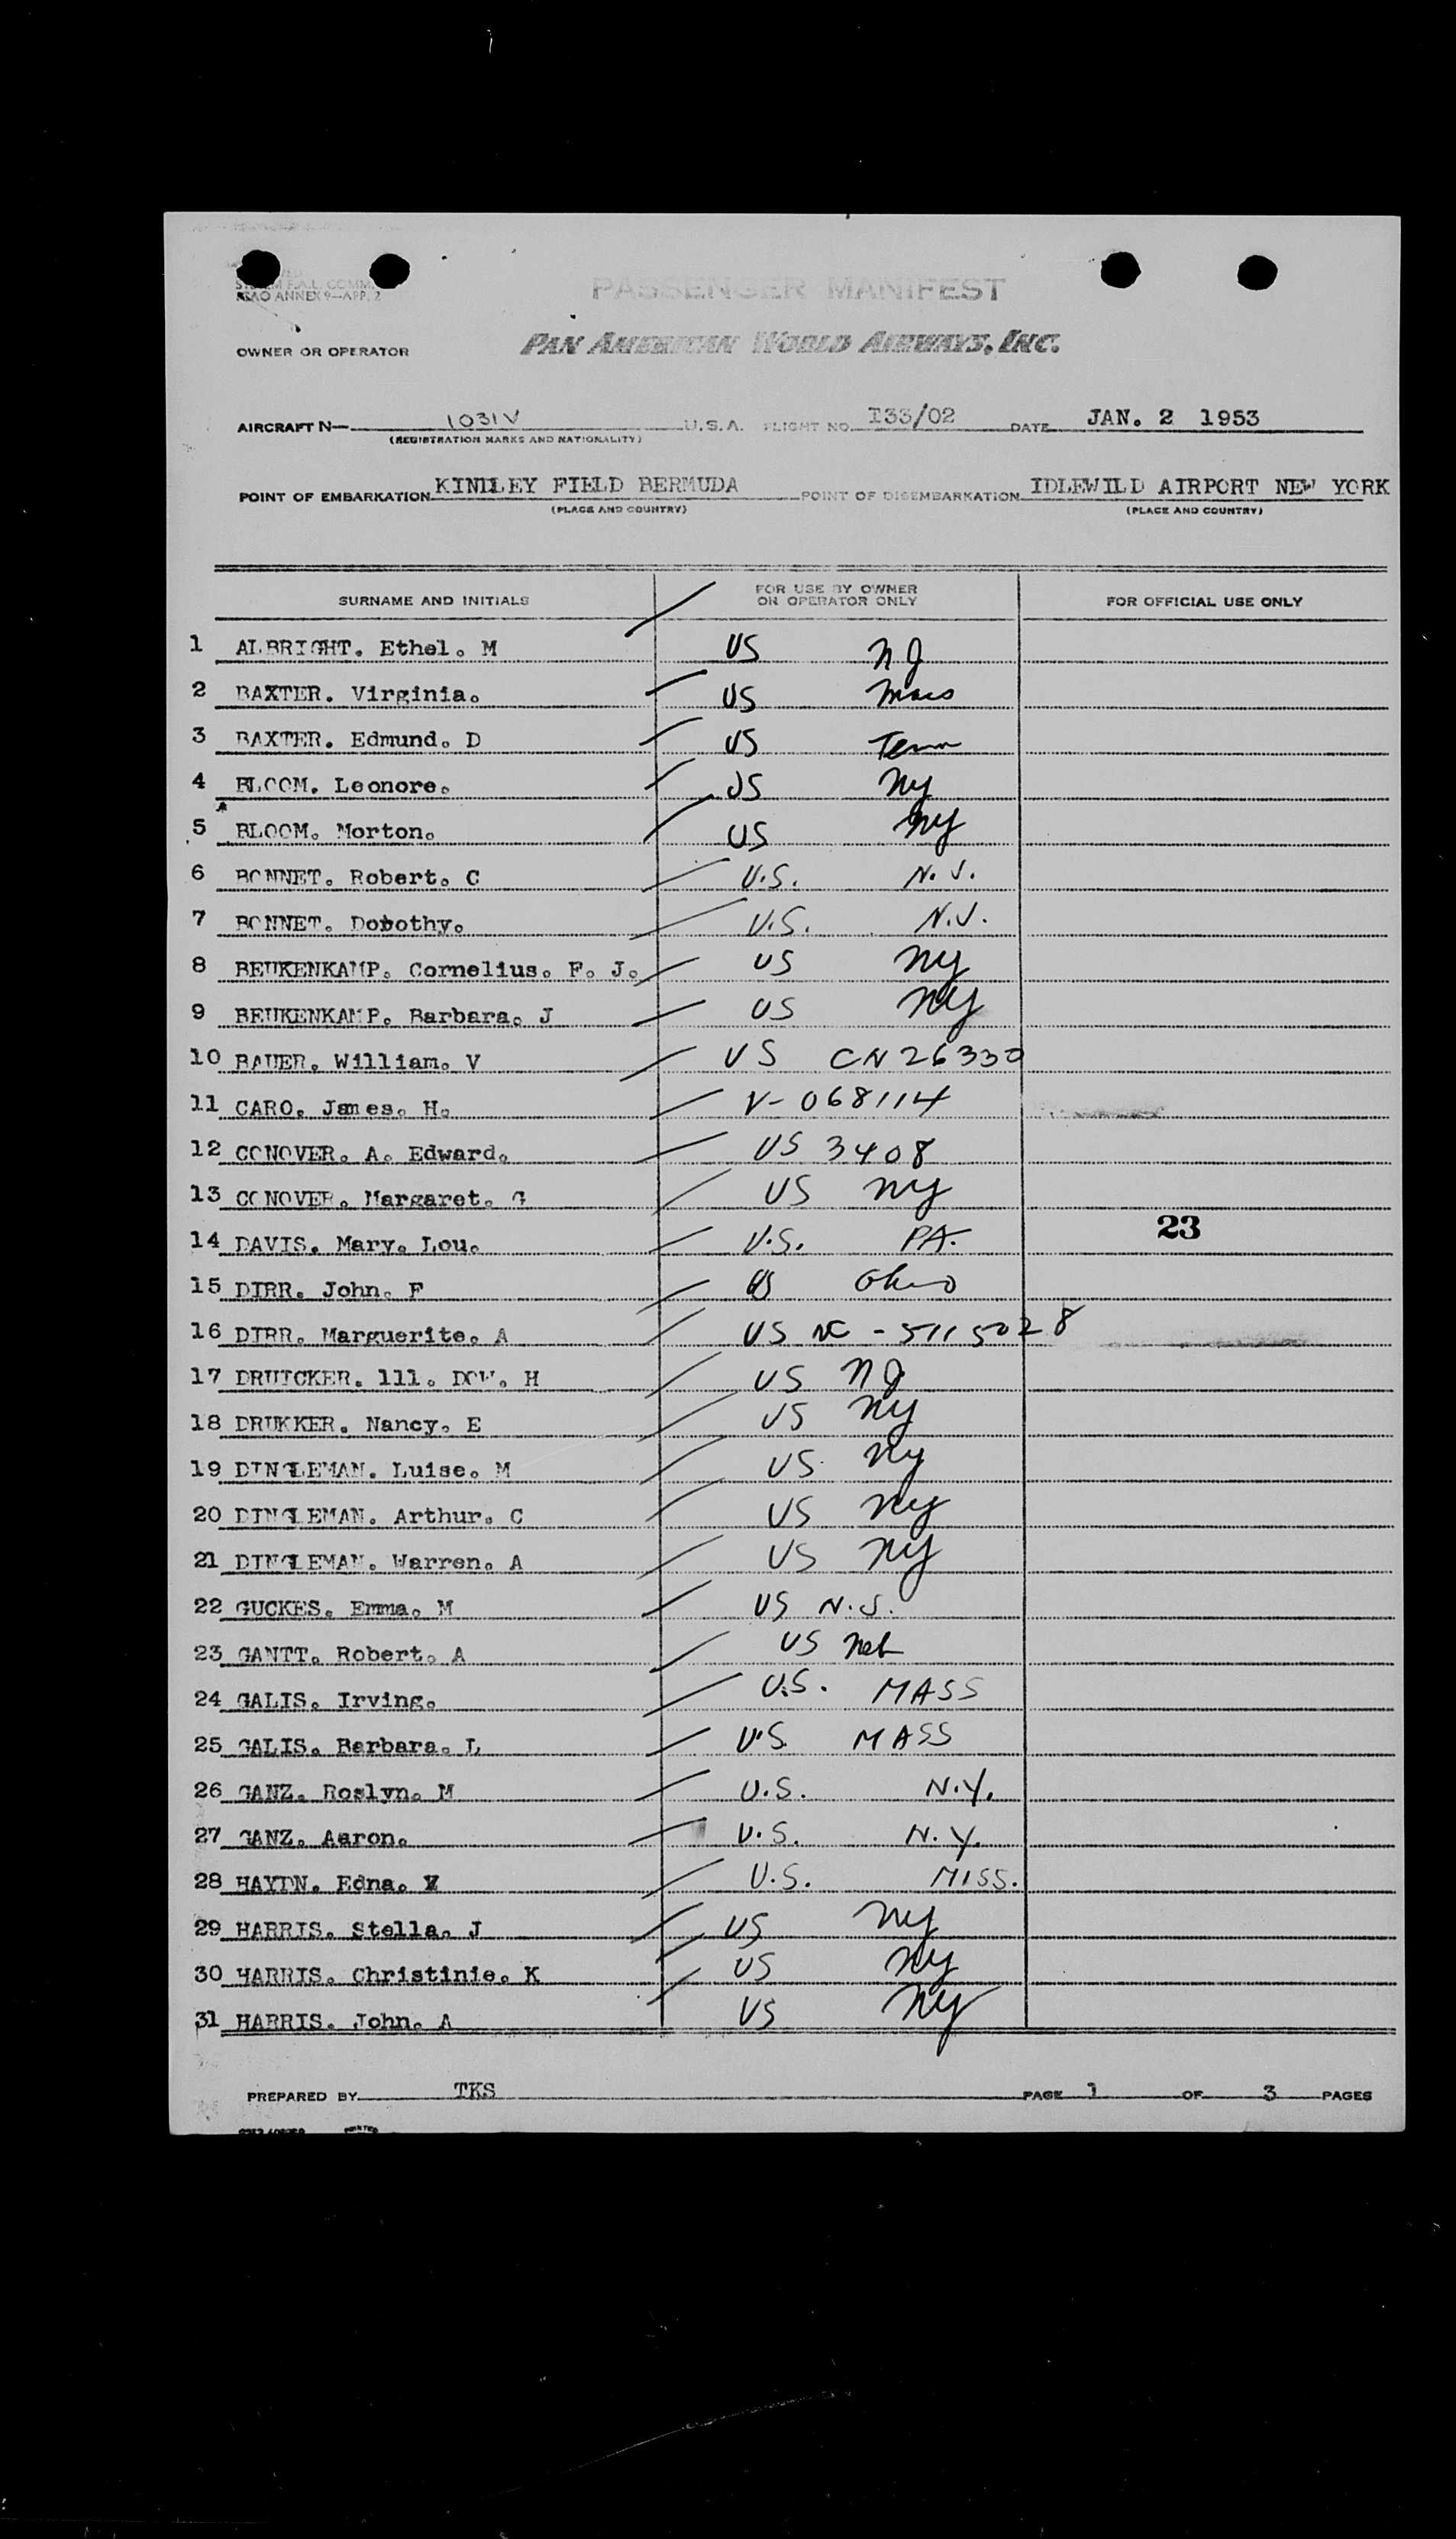 SYSTEM F.A.L. COMM.
ICAO ANNEX 9—APP. 2
PASSENGER MANIFEST
OWNER OR OPERATOR PAN AMERICAN WORLD AIRWAYS, INC.
AIRCRAFT N— 1031V U.S.A. FLIGHT NO. I33/02 DATE JAN. 2 1953
(REGISTRATION MARKS AND NATIONALITY)
POINT OF EMBARKATION KINDLEY FIELD BERMUDA POINT OF DISEMBARKATION IDLEWILD AIRPORT NEW YORK
(PLACE AND COUNTRY) (PLACE AND COUNTRY)
SURNAME AND INITIALS FOR USE BY OWNER OR OPERATOR ONLY FOR OFFICIAL USE ONLY
1 ALBRIGHT. Ethel. M US NJ
2 BAXTER. Virginia. US Mass
3 BAXTER. Edmund. D US Tenn
4 BLOOM. Leonore. US Ny
5 BLOOM. Morton. US Ny
6 BONNET. Robert. C U.S. N.J.
7 BONNET. Dorothy. U.S. N.J.
8 BEUKENKAMP. Cornelius. F. J. US Ny
9 BEUKENKAMP. Barbara. J US Ny
10 BAUER. William. V US CN 26330
11 CARO. James. H. V-068114
12 CONOVER. A. Edward. US 3408
13 CONOVER. Margaret. G US Ny
14 DAVIS. Mary. Lou. U.S. PA. 23
15 DIRR. John. F US Ohio
16 DIRR. Marguerite. A US NC - 5115028
17 DRUICKER. 111. DOW. H US NJ
18 DRUKKER. Nancy. E US Ny
19 DINGLEMAN. Luise. M US Ny
20 DINGLEMAN. Arthur. C US Ny
21 DINGLEMAN. Warren. A US Ny
22 GUCKES. Emma. M US N.J.
23 GANTT. Robert. A US Neb
24 GALIS. Irving. U.S. MASS
25 GALIS. Barbara. L U.S. MASS
26 GANZ. Roslyn. M U.S. N.Y.
27 GANZ. Aaron. U.S. N.Y.
28 HAYDN. Edna. V U.S. MISS.
29 HARRIS. Stella. J US Ny
30 HARRIS. Christinie. K US Ny
31 HARRIS. John. A US Ny
PREPARED BY TKS PAGE 1 OF 3 PAGES